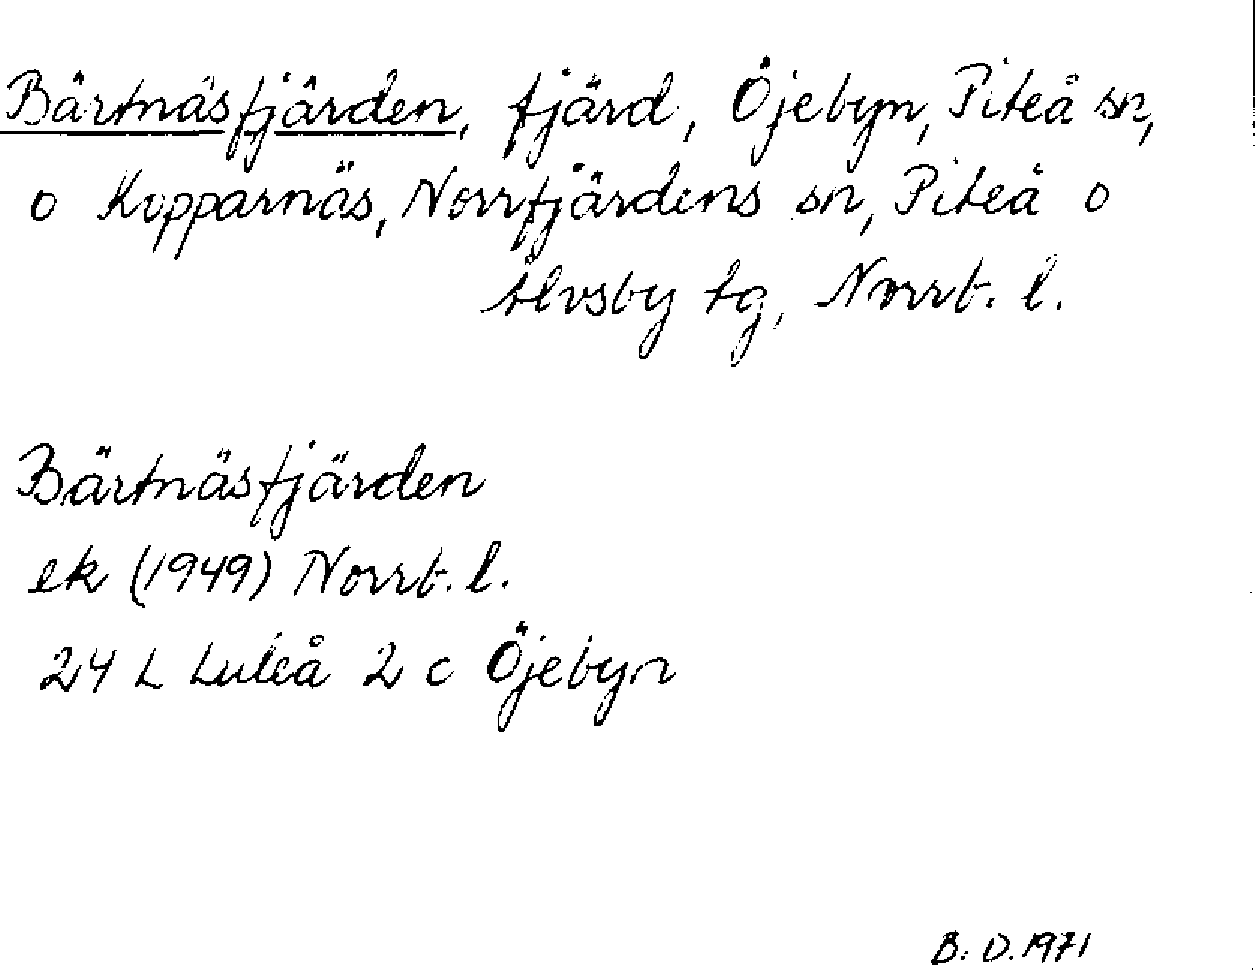 Bärtnäsfjärden, fjärd, Öjebyn, Piteå sn,
o Kopparnäs, Norrfjärdens sn, Piteå o
Älvsby tg, Norrb. l.
Bärtnäsfjärden
ek (1949) Norrb. l.
24 L Luleå 2 c Öjebyn
B. D. 1971